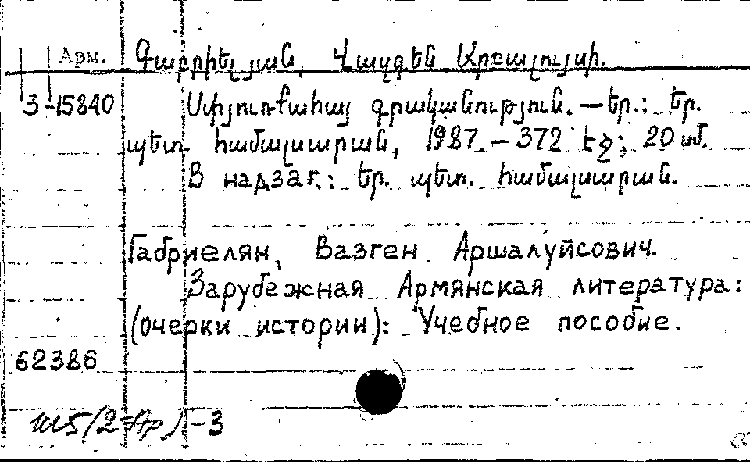 Арм. Գաբրիելյան, Վազգեն Արշալույսի.
3-15840 Սփյուռքահայ գրականություն. — Եր.: Եր.
պետ. համալսարան, 1987. — 372 էջ; 20 սմ.
В надзаг.: Եր. պետ. համալսարան.
Габриелян, Вазген Аршалуйсович.
Зарубежная Армянская литература:
(очерки истории): Учебное пособие.
62386
Ш5(2=Ар)-3